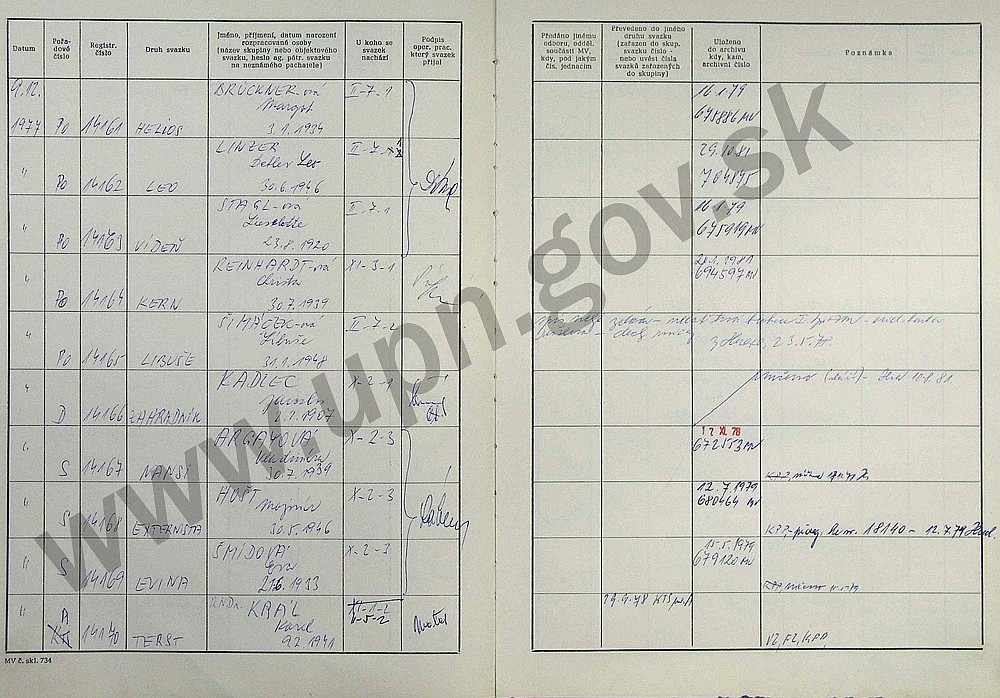 Datum
Pořa-
dové
číslo
Registr.
číslo
Druh svazku
Jméno, příjmení, datum narození
rozpracované osoby
(název skupiny nebo objektového
svazku, heslo ag. pátr. svazku
na neznámého pachatele)
U koho se
svazek
nachází
Podpis
oper. prac.
který svazek
přijal
Předáno jinému
odboru, odděl.
součásti MV,
kdy, pod jakým
čís. jednacím
Převedeno do jiného
druhu svazku
(zařazen do skup.
svazku číslo -
nebo uvést čísla
svazků zařazených
do skupiny)
Uloženo
do archivu
kdy, kam,
archivní číslo
Poznámka
9.12. BRUCKNER-ová II-7-1 16.1.79
Margot 675886 MV
1977 Po 14161 HELIOS 3.1.1934
LINZER II-7- 29.10.81
Detlev Leo 704875
" Po 14162 LEO 30.6.1946
STAGL-ová II-7-1 16.1.79
Lieselotte 675919 MV
" Po 14163 VÍDEŇ 23.8.1920
REINHARDT-ová XI-3-1 28.1.1981
Christa 694597 MV
" Po 14164 KERN 30.7.1939
ŠIMÁČEK-ová II-7-2
Libuše
" Po 14165 LIBUŠE 31.1.1948 23.5.78
KADLEC X-2-1 zničeno 10.8.81
Jaroslav
" D 14166 ZAHRADNÍK 1.2.1907
ARGAYOVÁ X-2-3 17 XI. 78
Vladimíra 672553 MV
" S 14167 NANSI 30.7.1939
HOŠT X-2-3 12.7.1979
Mojmír 680464 MV
" S 14168 EXTERNISTA 30.5.1946 KPP- 18140 - 12.7.79
ŠMÍDOVÁ X-2-3 15.5.1979
Eva 679120 MV
" S 14169 EVINA 21.6.1933 KPP zničeno
" RNDr. KRÁL XI-1-2 29.9.78 KTS na A
A Karel V-5-2
KA 14170 TERST 9.2.1941 VZ, FZ, KPP,
MV č. skl. 734
www.upn.gov.sk